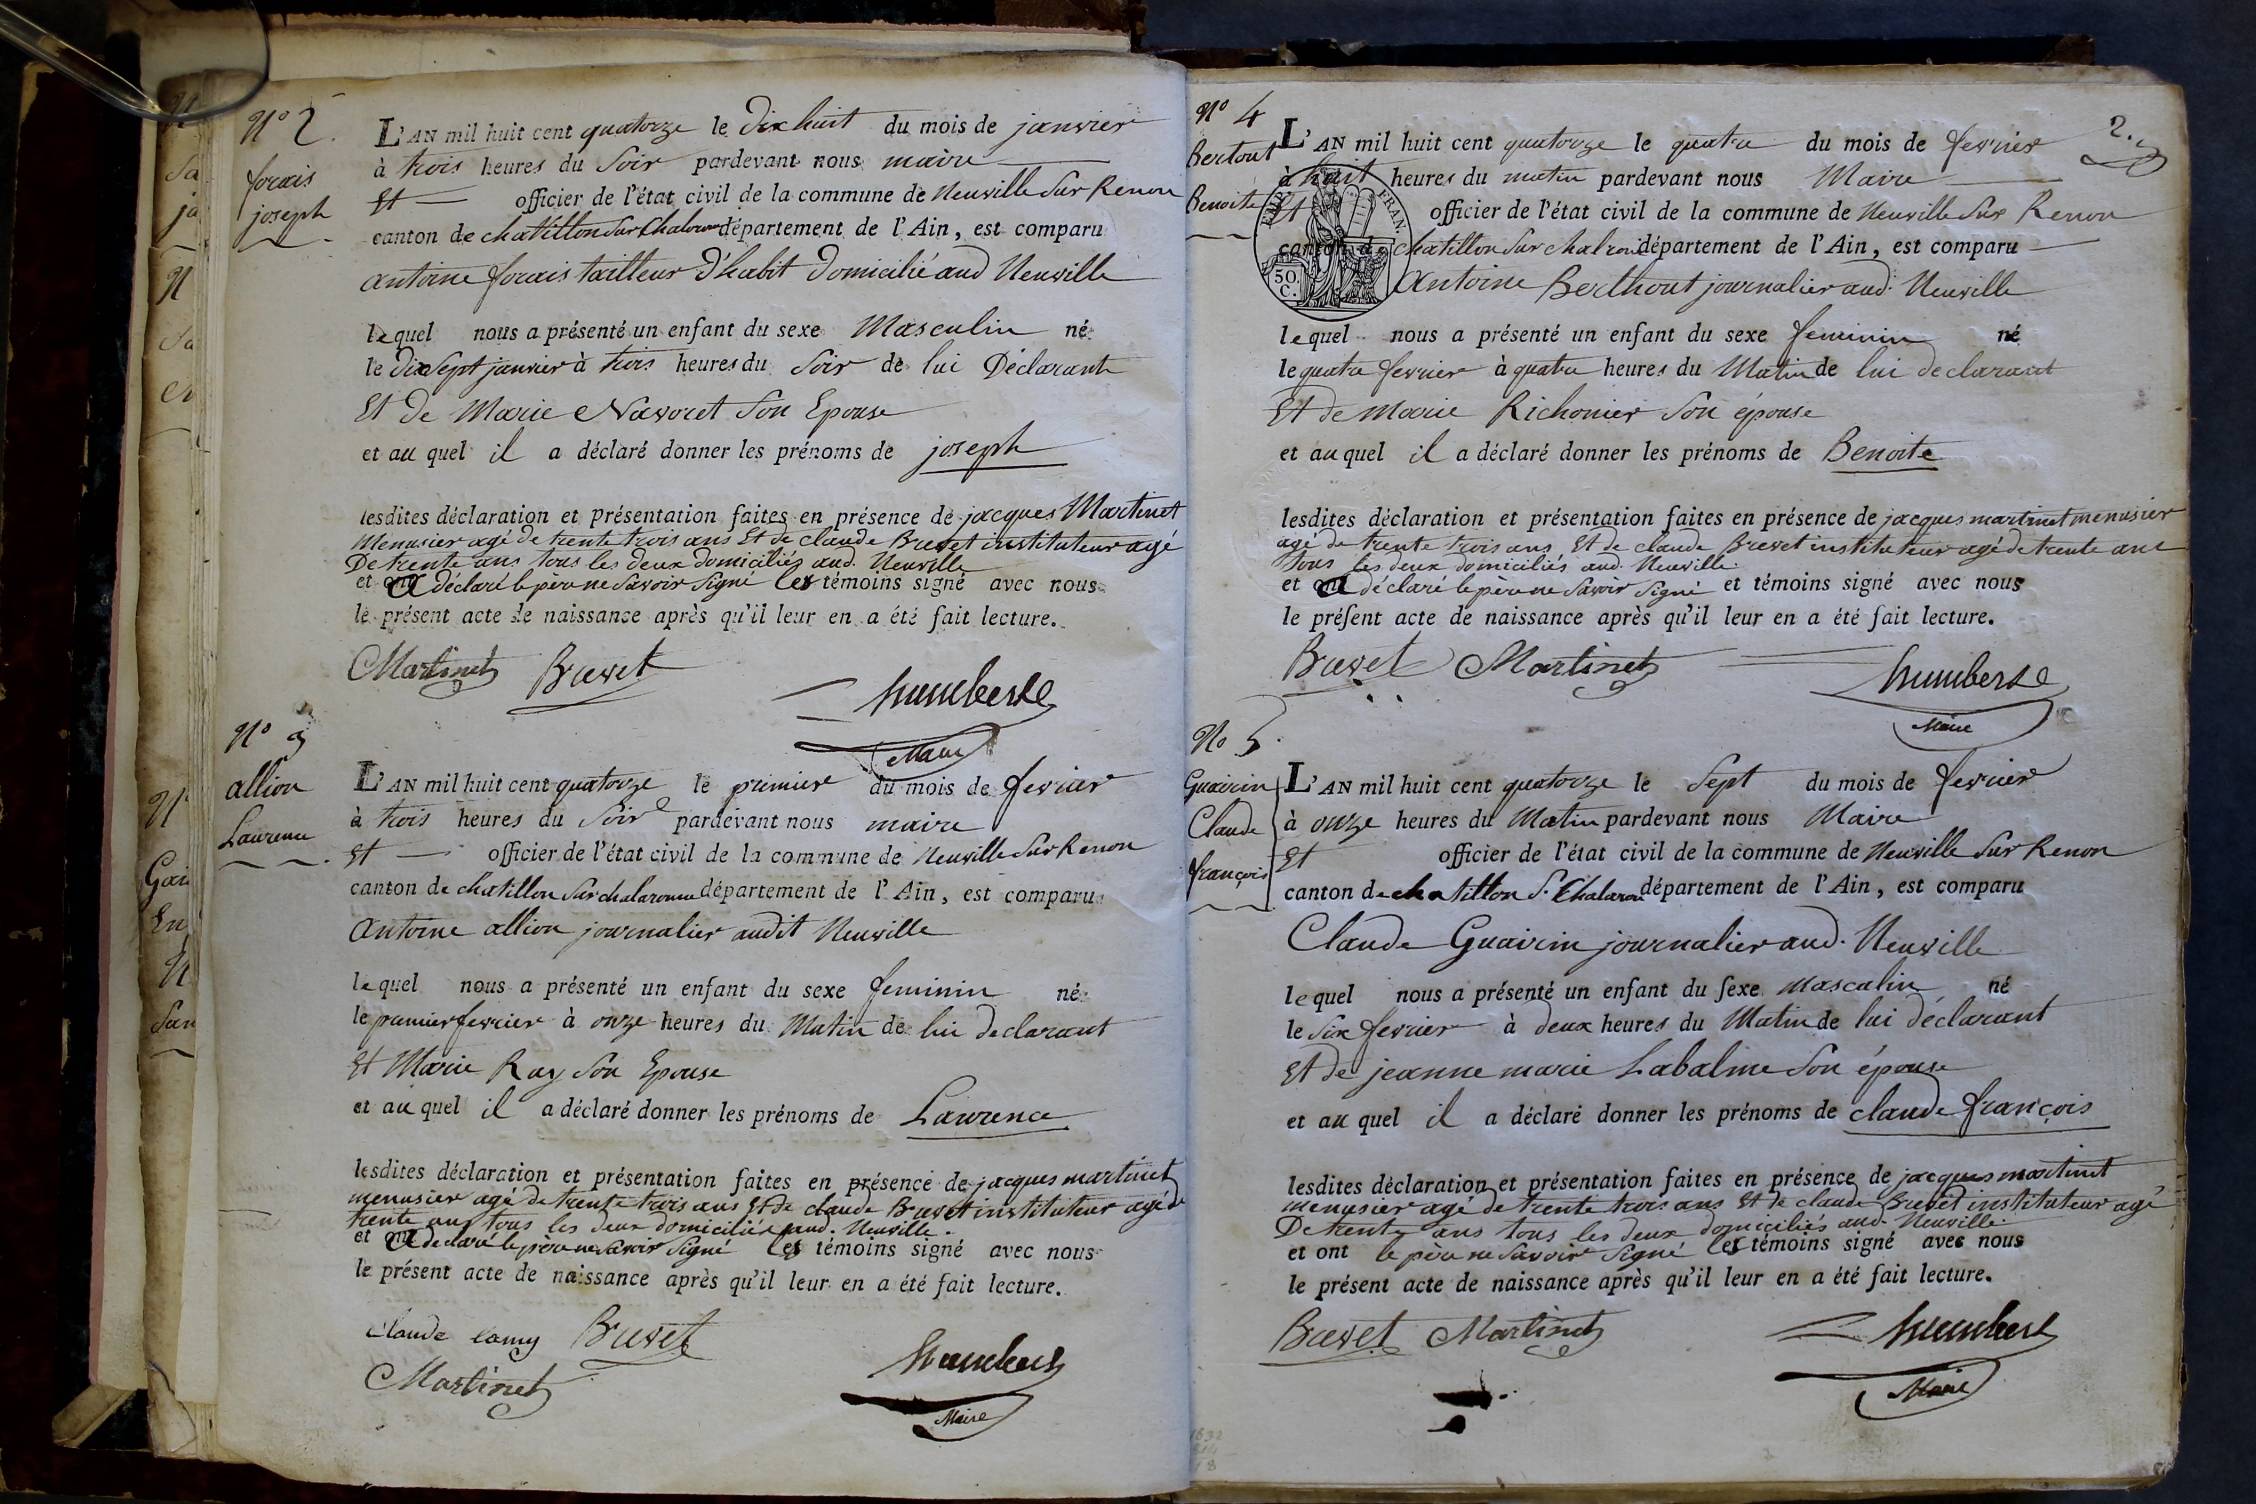 N° 2.
forais
joseph
L'AN mil huit cent quatorze le dix huit du mois de janvier
à trois heures du Soir pardevant nous maire
Et officier de l'état civil de la commune de Neuville Sur Renon
canton de chatillon Sur Chalaronne département de l'Ain, est comparu
antoine forais tailleur d'habit domicilié aud Neuville
lequel nous a présenté un enfant du sexe Masculin né
le dix Sept janvier à trois heures du Soir de lui Déclarant
Et de Marie Navoret Son Epouse
et au quel il a déclaré donner les prénoms de joseph
lesdites déclaration et présentation faites en présence de jacques Martinet
Menusier agé de trente trois ans Et de claude Brevet instituteur agé
De trente ans tous les deux domiciliés aud. Neuville
et a déclaré le père ne Savoir Signé les témoins signé avec nous
le présent acte de naissance après qu'il leur en a été fait lecture.
Martinet Brevet
humbert
Maire
N° 3
allion
Laurence
L'AN mil huit cent quatorze le premier du mois de fevrier
à trois heures du Soir pardevant nous maire
Et officier de l'état civil de la commune de Neuville Sur Renon
canton de chatillon Sur chalaronne département de l'Ain, est comparu
Antoine allion journalier audit Neuville
lequel nous a présenté un enfant du sexe feminin né
le premier fevrier à onze heures du Matin de lui declarant
Et Marie Ray Son Epouse
et au quel il a déclaré donner les prénoms de Laurence
lesdites déclaration et présentation faites en présence de jacques martinet
menusier agé de trente trois ans Et de claude Brevet instituteur agé de
trente ans tous les deux domiciliés aud. Neuville.
et a declaré le père ne Savoir Signé les témoins signé avec nous
le présent acte de naissance après qu'il leur en a été fait lecture.
Claude lamy Brevet
Martinet
humbert
Maire
2.
N° 4
Bertout
Benoite
L'AN mil huit cent quatorze le quatre du mois de fevrier
à huit heures du matin pardevant nous Maire
Et officier de l'état civil de la commune de Neuville Sur Renon
canton de chatillon Sur chalaronne département de l'Ain, est comparu
50 C.
FRAN.
Antoine Berthout journalier aud. Neuville
lequel nous a présenté un enfant du sexe feminin né
le quatre fevrier à quatre heures du Matin de lui declarant
Et de Marie Richonier Son épouse
et au quel il a déclaré donner les prénoms de Benoite
lesdites déclaration et présentation faites en présence de jacques martinet menusier
agé de trente trois ans, Et de claude Brevet instituteur agé de trente ans
tous les deux domiciliés aud. Neuville.
et a déclaré le père ne Savoir Signé et témoins signé avec nous
le présent acte de naissance après qu'il leur en a été fait lecture.
Brevet Martinet
humbert
Maire
No 5.
Guairin
Claude
françois
L'AN mil huit cent quatorze le Sept du mois de fevrier
à onze heures du Matin pardevant nous Maire
Et officier de l'état civil de la commune de Neuville Sur Renon
canton de chatillon S. Chalaronne département de l'Ain, est comparu
Claude Guairin journalier aud. Neuville
lequel nous a présenté un enfant du sexe Masculin né
le Six fevrier à deux heures du Matin de lui déclarant
Et de jeanne marie Labalme Son épouse
et au quel il a déclaré donner les prénoms de claude françois
lesdites déclaration et présentation faites en présence de jacques martinet
menusier agé de trente trois ans Et de claude Brevet instituteur agé
De trente ans tous les deux domiciliés aud. Neuville.
et ont le père ne Savoir Signé les témoins signé avec nous
le présent acte de naissance après qu'il leur en a été fait lecture.
Brevet Martinet
humbert
Maire